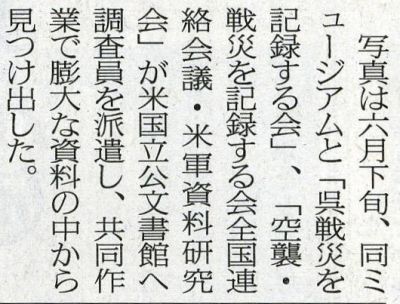 写真は六月下旬、同ミ
ュージアムと「呉戦災を
記録する会」、「空襲・
戦災を記録する会全国連
絡会議・米軍資料研究
会」が米国立公文書館へ
調査員を派遣し、共同作
業で膨大な資料の中から
見つけ出した。